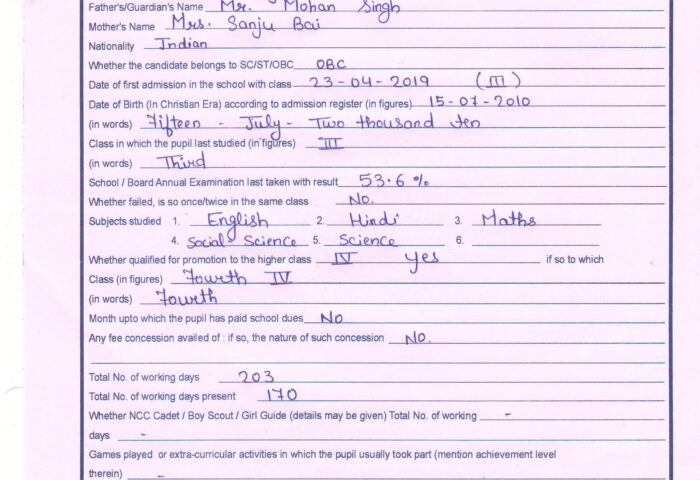 Father's/Guardian's Name Mr. Mohan Singh
Mother's Name Mrs. Sanju Bai
Nationality Indian
Whether the candidate belongs to SC/ST/OBC OBC
Date of first admission in the school with class 23-04-2019 (III)
Date of Birth (In Christian Era) according to admission register (in figures) 15-07-2010
(in words) Fifteen - July - Two thousand ten
Class in which the pupil last studied (in figures) III
(in words) Third
School / Board Annual Examination last taken with result 53.6 %
Whether failed, is so once/twice in the same class No.
Subjects studied 1. English 2. Hindi 3. Maths
4. Social Science 5. Science 6.
Whether qualified for promotion to the higher class IV Yes if so to which
Class (in figures) Fourth IV
(in words) Fourth
Month upto which the pupil has paid school dues No
Any fee concession availed of : if so, the nature of such concession No.
Total No. of working days 203
Total No. of working days present 170
Whether NCC Cadet / Boy Scout / Girl Guide (details may be given) Total No. of working -
days -
Games played or extra-curricular activities in which the pupil usually took part (mention achievement level
therein) -